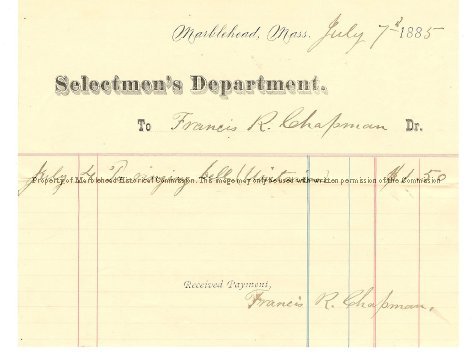 Marblehead, Mass. July 7th 1885
Selectmen's Department.
To Francis R. Chapman Dr.
July 4 To ringing bell $1.50
Property of Marblehead Historical Commission. This image may only be used with written permission of the Commission
Received Payment,
Francis R. Chapman.